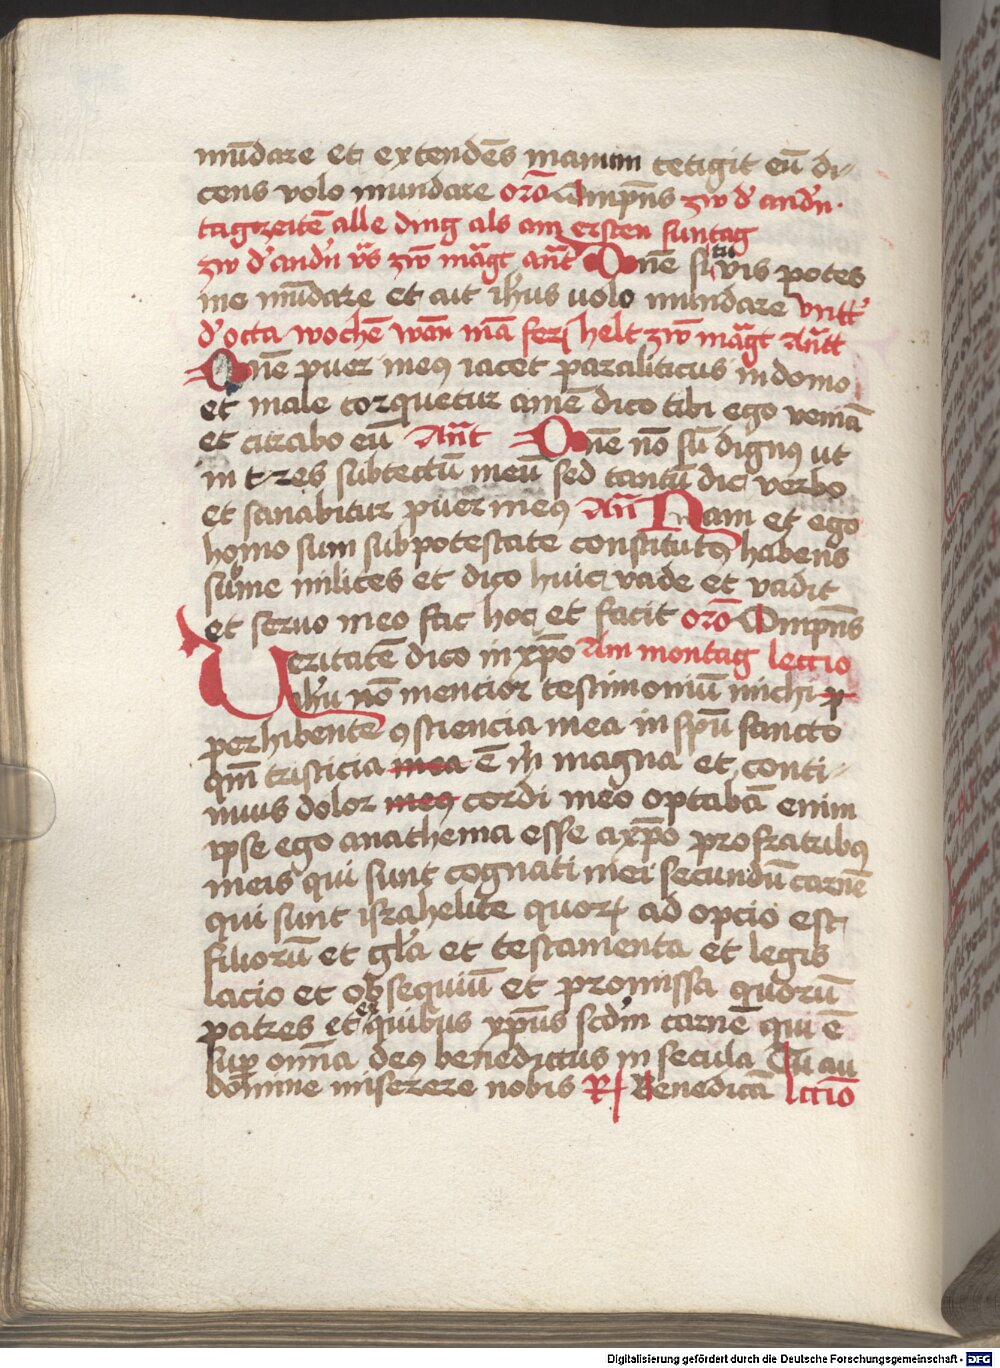 mūdare et extendēs manum tetigit eū di-
cens volo mundare orō Ompn̄s zw d' andn̄.
tagzeitē alle ding als am ersten suntag
zw d' andn̄ v̄s zw̄ māgt an̄t Dn̄e si tu vis potes
me mūdare et ait ih̄us uolo mundare vntt'
d' octa wochē wan mā ferj helt zw̄ māgt An̄tt
Dn̄e puer meꝯ iacet paraliticus in domo
et male torquetur amē dico tibi ego veniā
et curabo eū An̄t Dn̄e nō sū dignꝯ ut
intres sub tectū meū sed tantū dic verbo
et sanabitur puer meꝯ An̄ Nam et ego
homo sum sub potestate constitutꝯ habens
sub me milites et dico huic vade et vadit
et seruo meo fac hoc et facit orō Ompn̄s
Veritatē dico in xp̄o Am montag lectio
ih̄u nō mencior testimoniū michi p
perhibente ꝯsciencia mea in sp̄u sancto
qm̄ tristicia mea ē m̄ magna et conti-
nuus dolor meꝯ cordi meo optabā enim
ipse ego anathema esse a xp̄o pro fratribꝯ
meis qui sunt cognati mei secundū carnē
qui sunt israhelite quorꝝ ad opcio est
filiorū et gl̄a et testamenta et legis
lacio et obsequiū et promissa quorū
patres et ex quibus xp̄us scdm̄ carnē qui ē
sup om̄ia deꝯ benedictus in secula Tu au
domine miserere nobis R̸ Benedicā lctiō